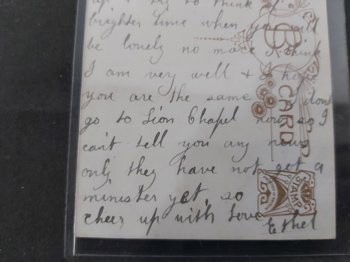 up & try to think of a
brighter time when you will
be lonely no more I think
I am very well & I hope
you are the same I dont
go to Zion Chapel now so I
can't tell you any news
only they have not got a
minister yet, so
cheer up with love
Ethel
CARD